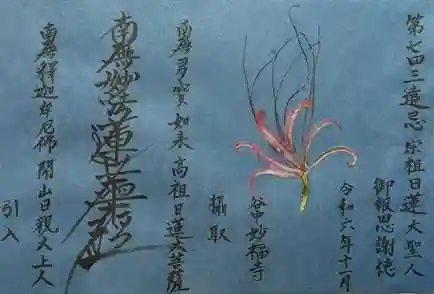 第七四三遠忌 宗祖日蓮大聖人
御報恩謝徳
令和六年十一月
谷中妙福寺
攝取
南無多寳如来 高祖日蓮大菩薩
南無妙法蓮華経
南無釋迦牟尼佛 開山日親大上人
引入